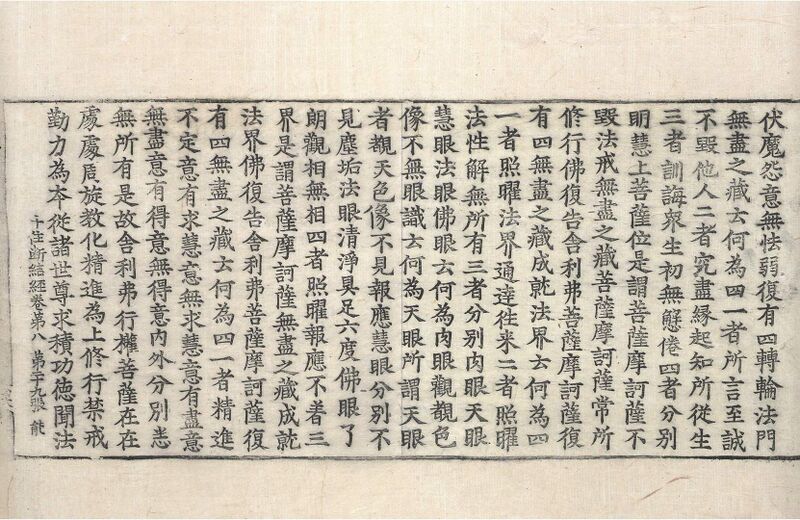 伏魔怨意無怯弱復有四轉輪法門
無盡之藏云何為四一者所言至誠
不毀他人二者究盡緣起知所從生
三者訓誨衆生初無懈倦四者分別
明慧上菩薩位是謂菩薩摩訶薩不
毀法戒無盡之藏菩薩摩訶薩常所
修行佛復告舍利弗菩薩摩訶薩復
有四無盡之藏成就法界云何為四
一者照曜法界通達往来二者照曜
法性解無所有三者分别肉眼天眼
慧眼法眼佛眼云何為肉眼觀觀色
像不無眼識云何為天眼所謂天眼
者觀天色像不見報應慧眼分别不
見塵垢法眼清淨具足六度佛眼了
朗觀相無相四者照曜報應不著三
界是謂菩薩摩訶薩無盡之藏成就
法界佛復告舍利弗菩薩摩訶薩復
有四無盡之藏云何為四一者精進
不定意有求慧意無求慧意有盡意
無盡意有得意無得意内外分别悉
無所有是故舍利弗行權菩薩在在
處處周旋教化精進為上修行禁戒
勤力為本從諸世尊求積功德聞法
十住斷結經卷第八 第二十九張 能